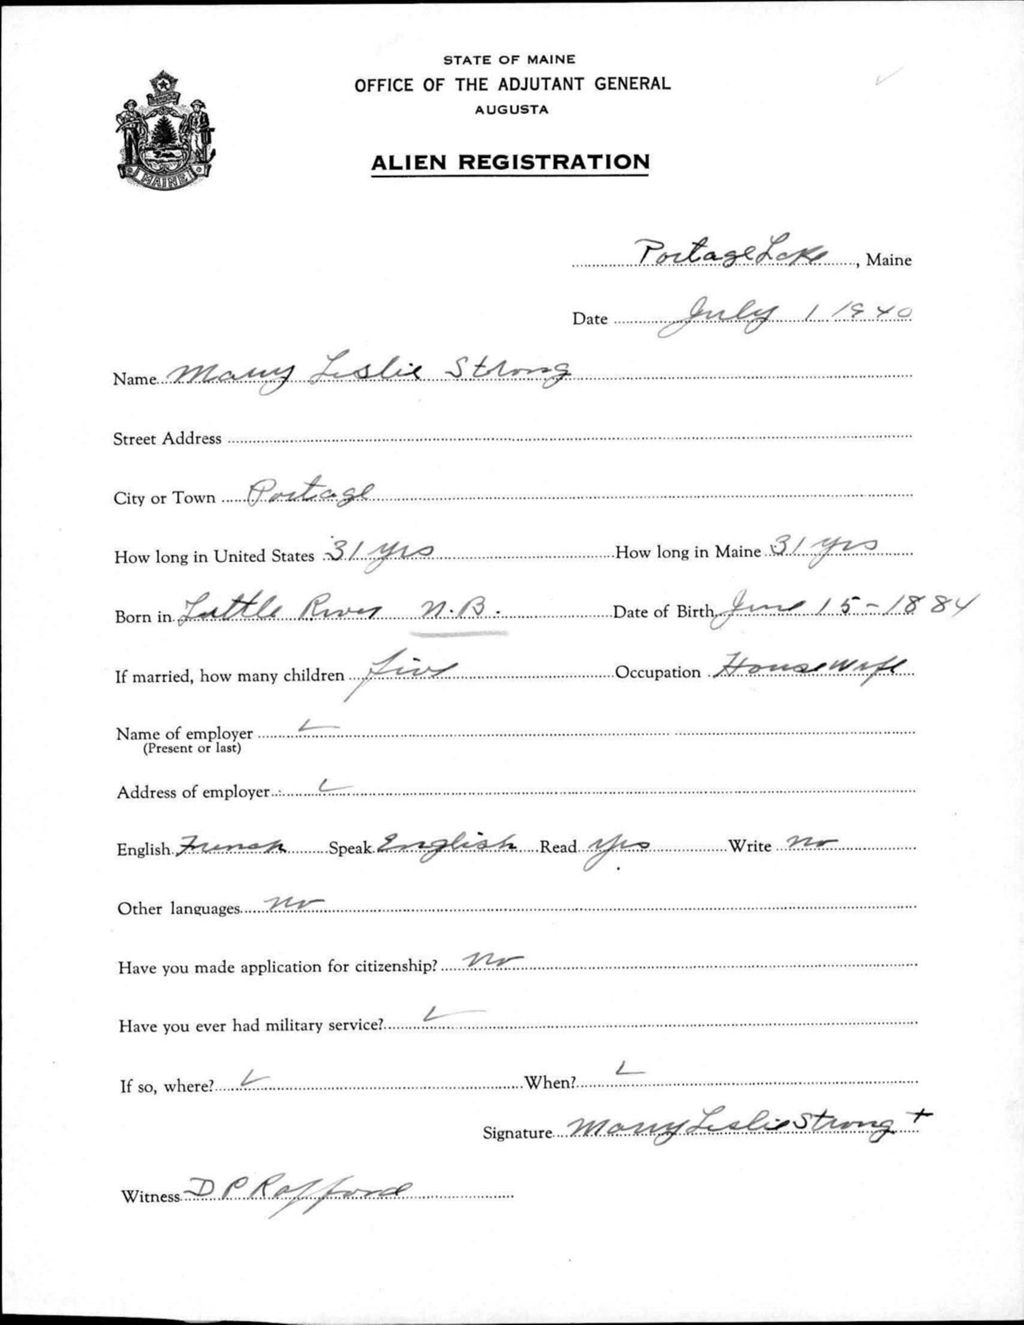 STATE OF MAINE
OFFICE OF THE ADJUTANT GENERAL
AUGUSTA
ALIEN REGISTRATION
MAINE
Portage Lake, Maine
Date July 1, 1940
Name Mary Leslie Strong
Street Address
City or Town Portage
How long in United States 31 yrs How long in Maine 31 yrs
Born in Little River N.B. Date of Birth June 15-1884
If married, how many children five Occupation Housewife
Name of employer
(Present or last)
Address of employer
English French Speak English Read yes Write no
Other languages no
Have you made application for citizenship? no
Have you ever had military service?
If so, where? When?
Signature Mary Leslie Strong +
Witness D P Rafford